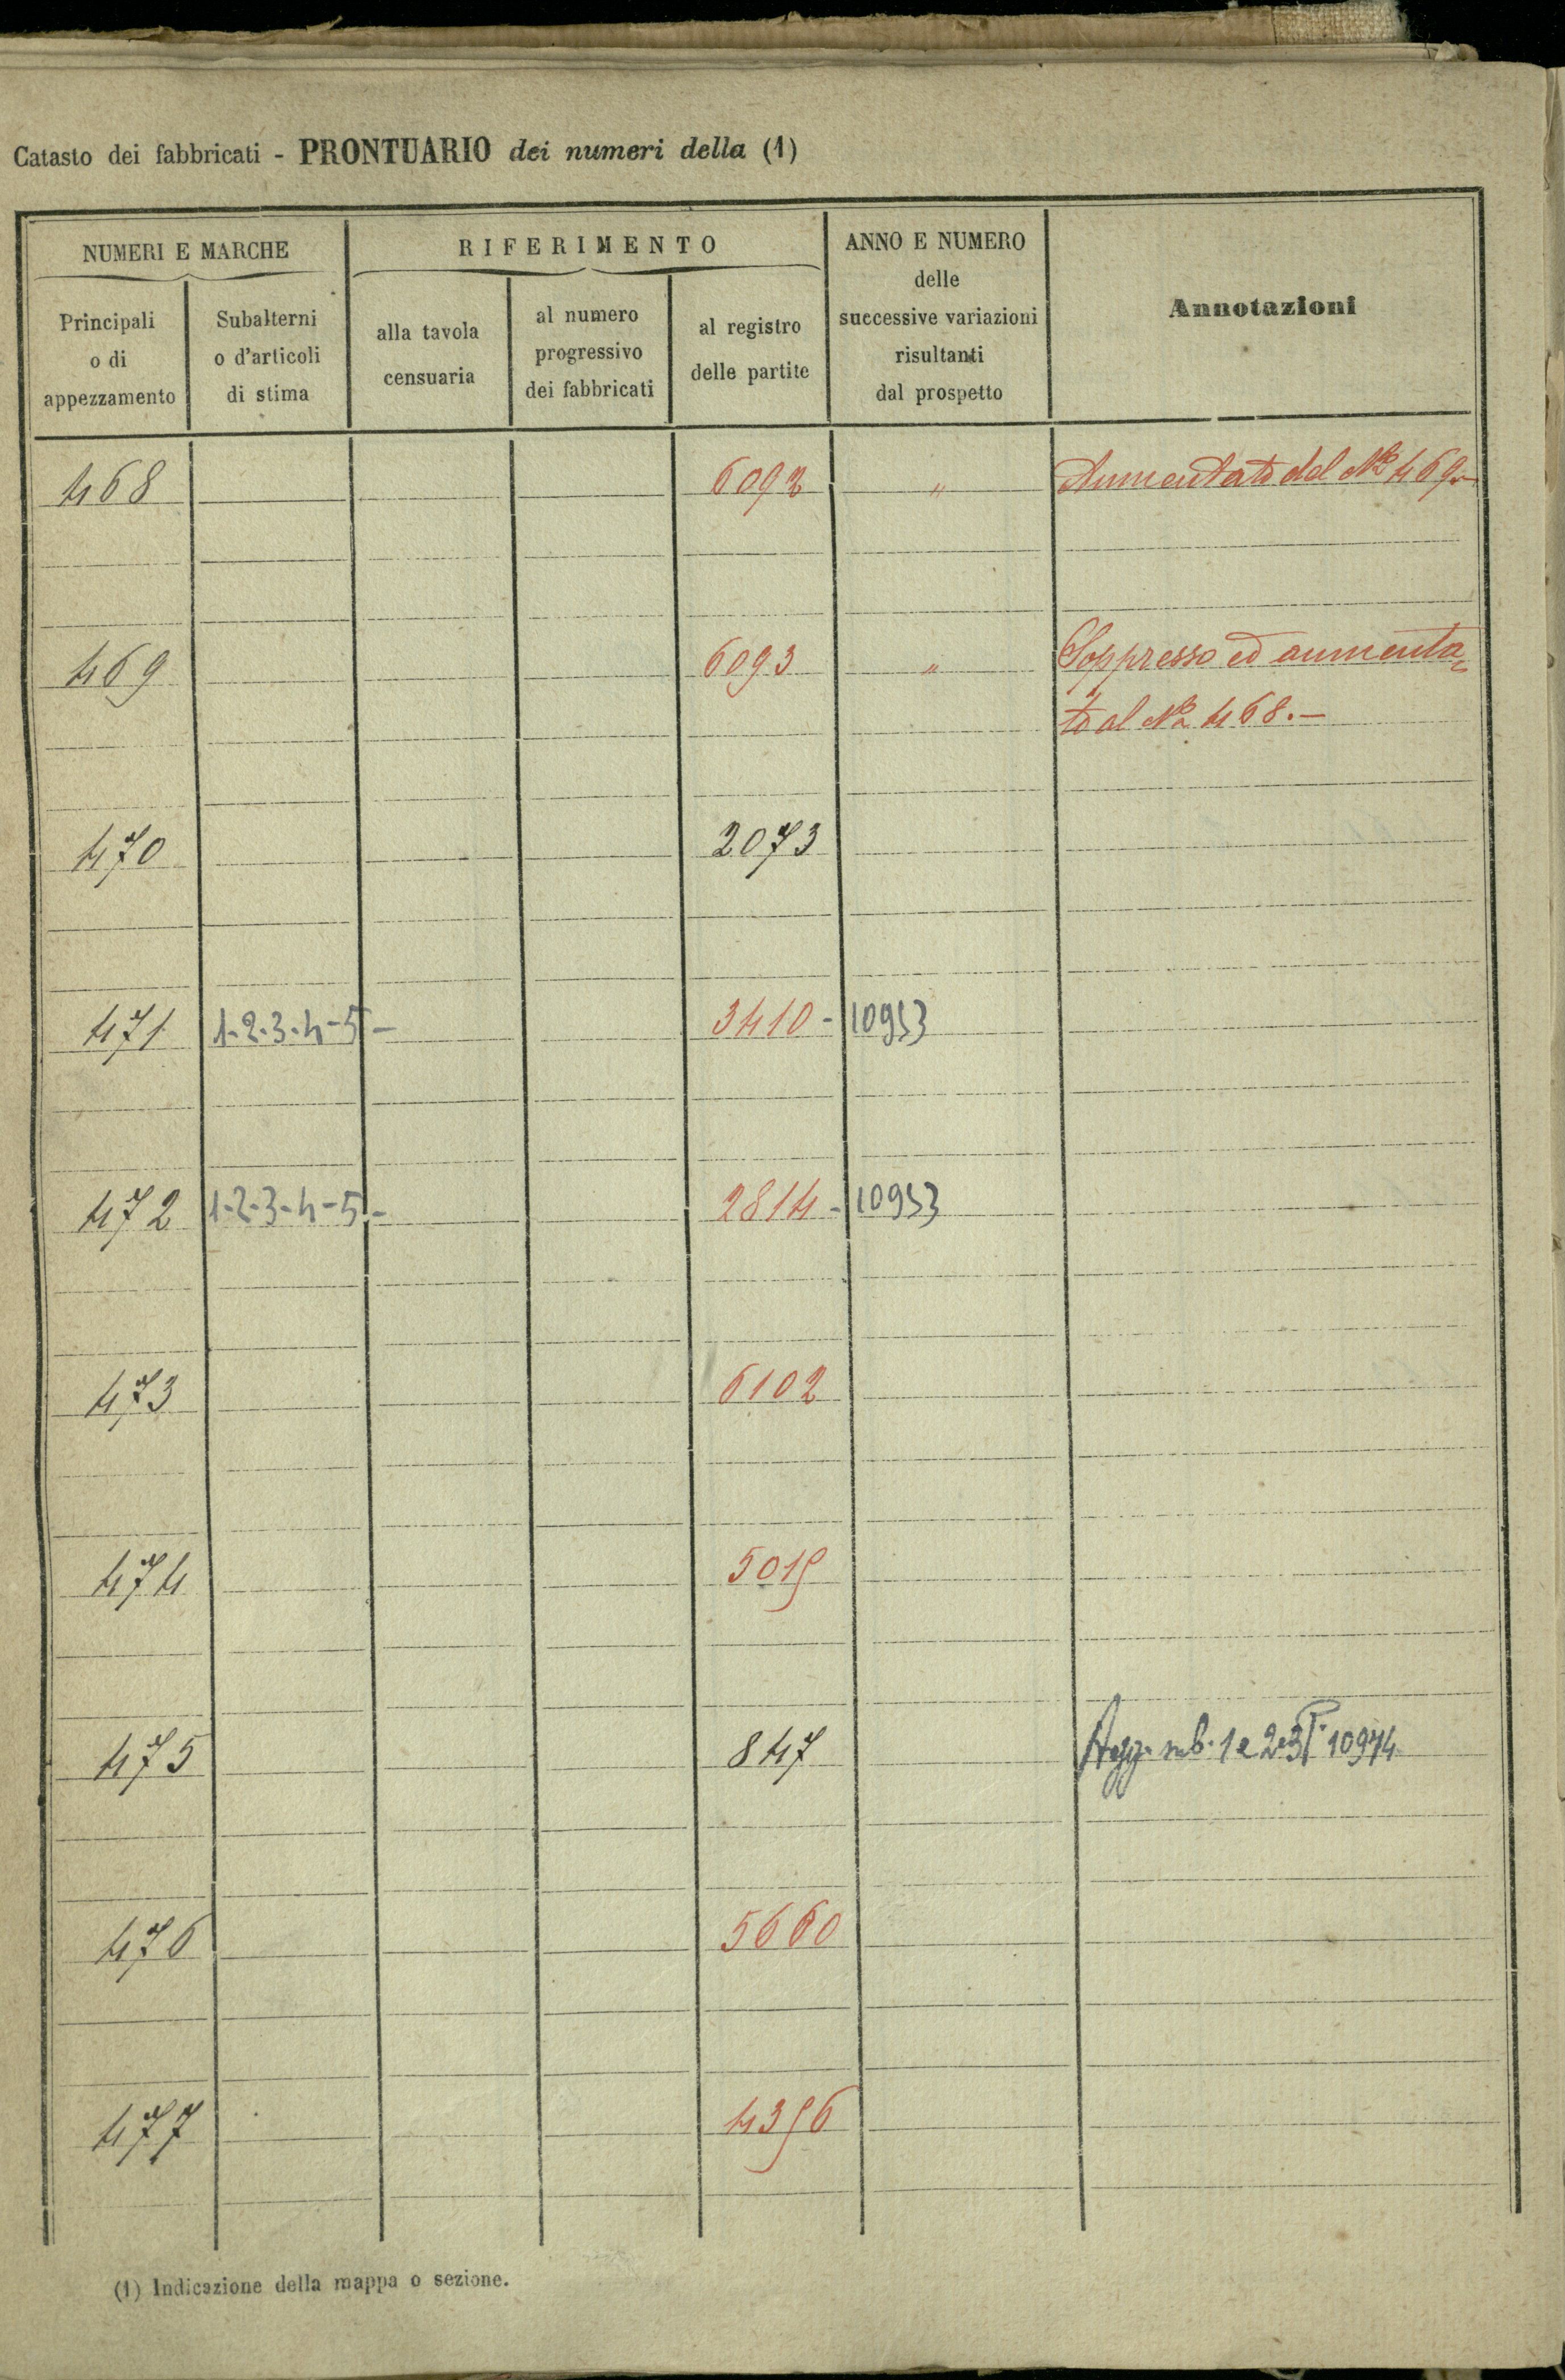 Catasto dei fabbricati - PRONTUARIO dei numeri della (1)
NUMERI E MARCHE
RIFERIMENTO
ANNO E NUMERO
delle
successive variazioni
risultanti
dal prospetto
Annotazioni
Principali
o di
appezzamento
Subalterni
o d'articoli
di stima
alla tavola
censuaria
al numero
progressivo
dei fabbricati
al registro
delle partite
468 6092 " Aumentato del No 469.
469 6093 " Soppresso ed aumenta=
to al No 468.-
470 2073
471 1-2-3-4-5- 3410- 10953
472 1-2-3-4-5- 2814- 10953
473 6102
474 5019
475 847 Agg. sub. 1 e 2 e 3 P. 10974
476 5660
477 4396
(1) Indicazione della mappa o sezione.